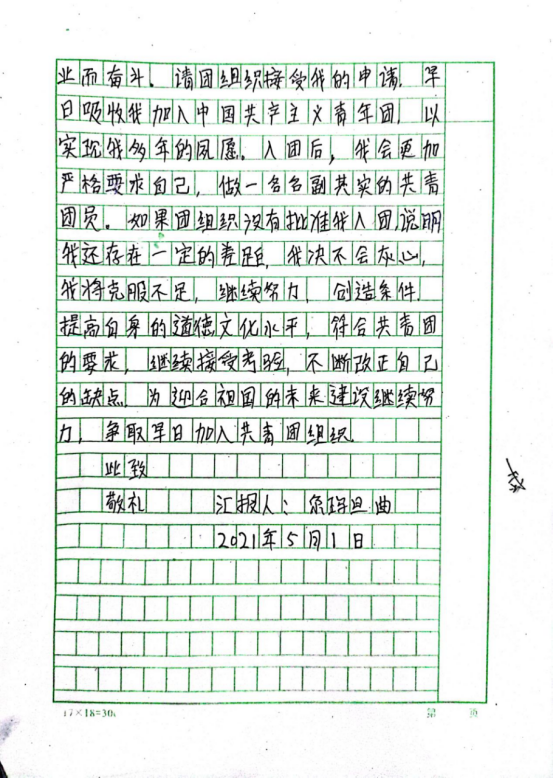 业而奋斗。请团组织接受我的申请，早
日吸收我加入中国共产主义青年团，以
实现我多年的夙愿。入团后，我会更加
严格要求自己，做一名名副其实的共青
团员。如果团组织没有批准我入团，说明
我还存在一定的差距，我决不会灰心，
我将克服不足，继续努力，创造条件，
提高自身的道德文化水平，符合共青团
的要求，继续接受考验，不断改正自己
的缺点，为迎合祖国的未来建设继续努
力，争取早日加入共青团组织。
此致
敬礼 汇报人：曲
2021年5月1日
17×18=306 第 页